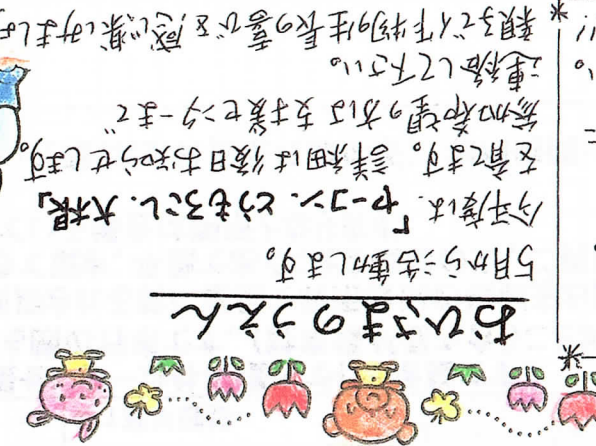 おひさまのうえん
5月から活動します。
今年度は、「ヤーコン、とうもろこし、大根」
を育てます。詳細は後日お知らせします。
参加希望の方は支援センターまで
連絡して下さい。
親子で作物の生長の喜びを感じ楽しみまし